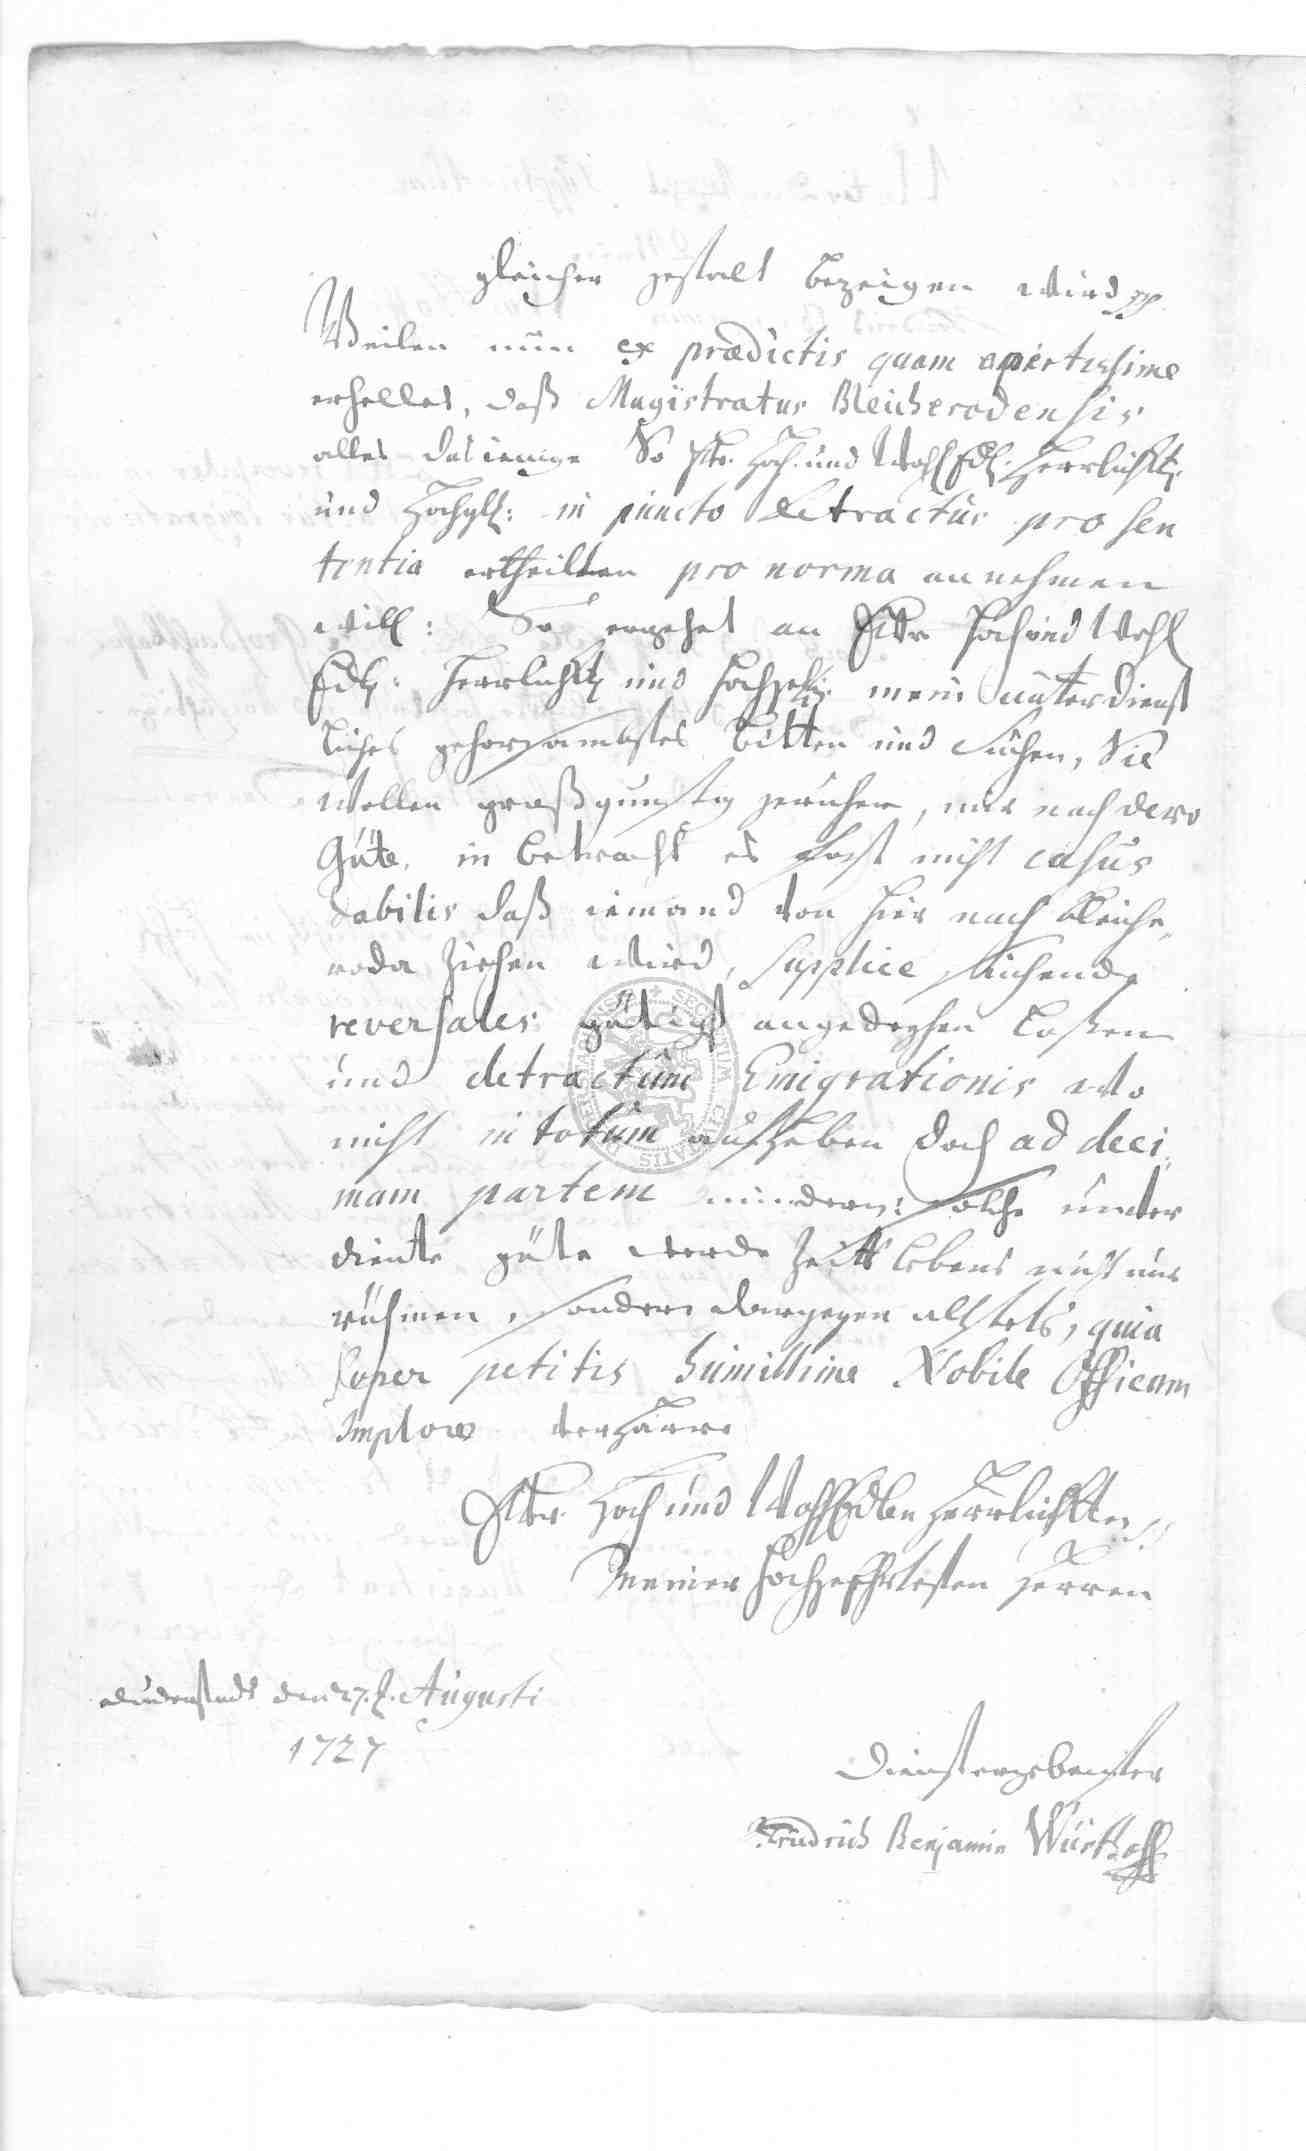 gleicher gestalt bezeigen wird pp.
Weilen nun ex prædictis quam apertissime
erhellet, daß Magistratus Bleicherodensis
alles dasienige So Ihr. Hoch und WohlEdl. Herrlichk.
und Hochg.: in puncto detractus pro sen
tentia ertheilten pro norma annehmen
will: So ergehet an Ihr Hoch und Wohl
Edl: Herrlichk und Hochg. mein unterdienst
liches gehorsambstes bitten und suchen, Sie
wollen großgunstig geruhen, mir nach dero
Güte, in betracht es fast nicht casus
dabilis daß iemand von hier nach Bleiche,
roda ziehen wird, Supplice suchende
reversales gütigst angedeyhen laßen
und detractum Emigrationis wo
nicht in totum aufheben doch ad deci,
mam partem mindern: solche unver
diente güte werde Zeitt lebens nicht nur
rühmen, sondern dargegen alstets, quia
super petitis humillime Nobile Officium
Imploro verharre
Ihr Hoch und WohlEdlen Herrlichktten
Meiner Hochgeehrtesten Herren
Duderstadt den 27. t. Augusti
1727
Dienstergebenster
Friedrich Benjamin
SECRETUM CIVITATIS